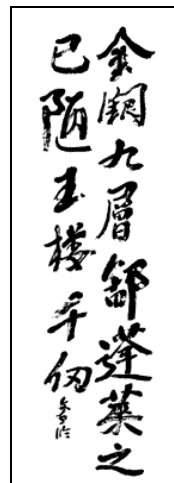 金闕九層鄙蓬萊之
已陋玉樓千仞